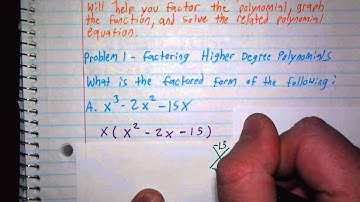 will help you factor the polynomial, graph
the function, and solve the related polynomial
equation.
Problem 1 - Factoring Higher Degree Polynomials
What is the factored form of the following?
A. x³ - 2x² - 15x
x(x² - 2x - 15)
-15